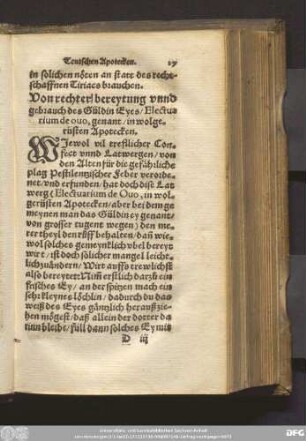 Teutschen Apotecken.
in solichen nöten an statt des recht-
schaffnen Tiriacs brauchen.
Von rechter bereytung vnnd
gebrauch des Güldin Eyes / Electua
rium de ouo, genant / in wolge-
rüsten Apotecken.
Wiewol vil trefflicher Con-
fect vnnd Latwergen / von
den Alten für die gefährliche
plag Pestilentzischer Feber verord-
net / vnd erfunden / hat doch dise Lat
werg (Electuarium de Ouo, in wol-
gerüsten Apotecken / aber bei dem ge
meynen man das Güldin ey genant /
von grosser tugent wegen) den me-
rer theyl den kriff behalten / dañ wie-
wol solches gemeynklich vbel bereyt
wirt / ist doch sölicher mangel leicht-
lich zuändern / Wirt auffs trewlichst
also bereytet: Nim̃ erstlich darzů ein
frisches Ey / an der spitzen mach ein
sehr kleynes löchlin / dadurch du das
weiß des Eyes gäntzlich heraußzie-
hen mögest / daß allein der dotter da
rinn bleibe / füll dann solches Ey mit
D iij